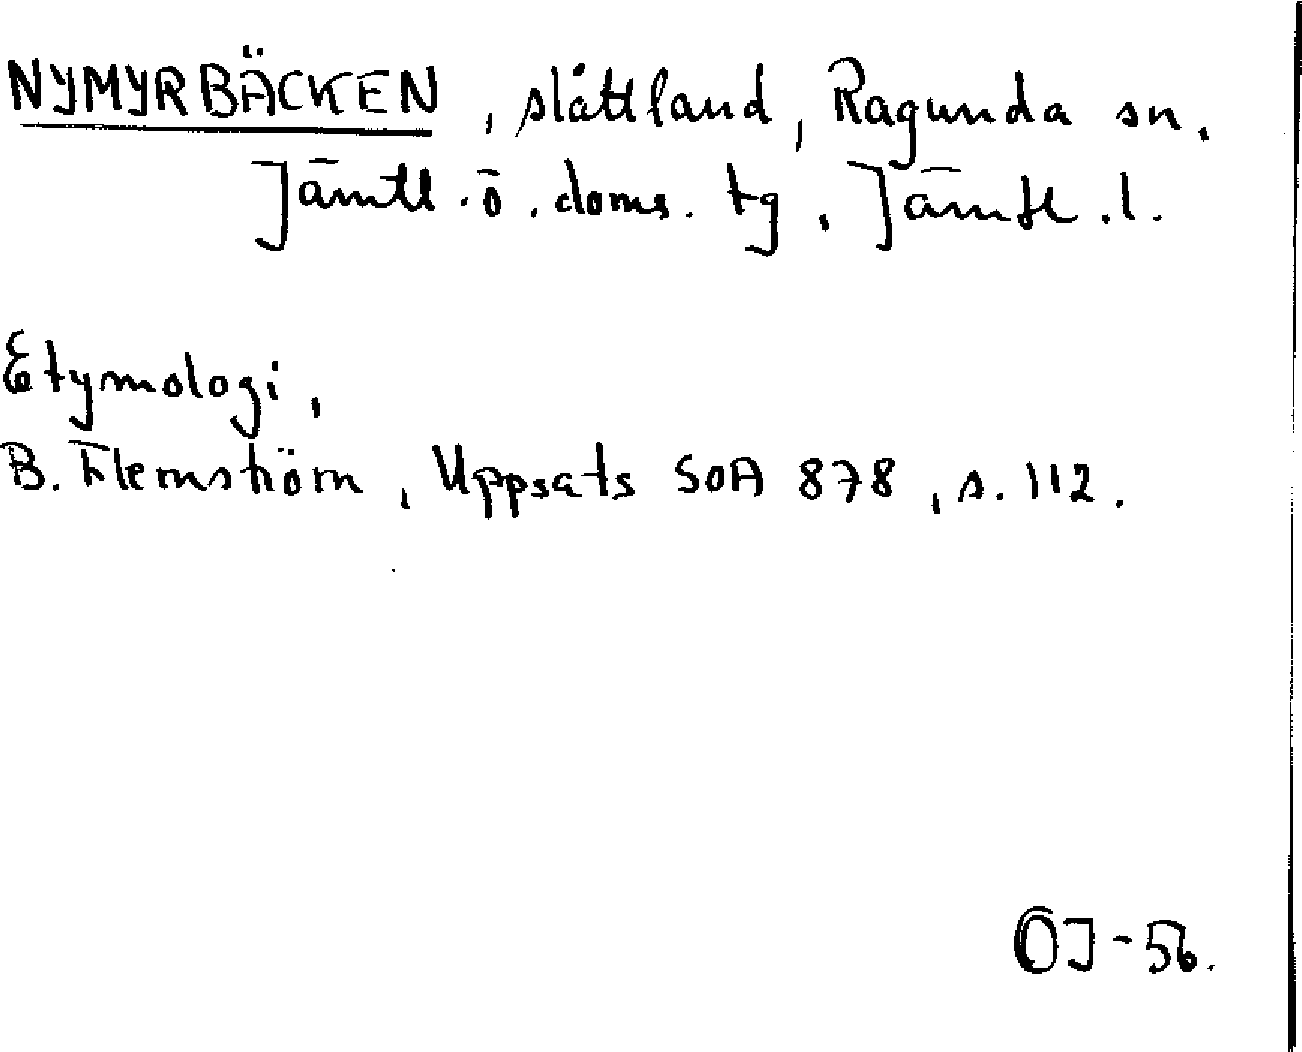 NYMYRBÄCKEN, slåttland, Ragunda sn.
Jämtl. ö. doms. tg, Jämtl. l.
Etymologi,
B. Flemström, Uppsats SOA 878, s. 112.
ÖJ-56.